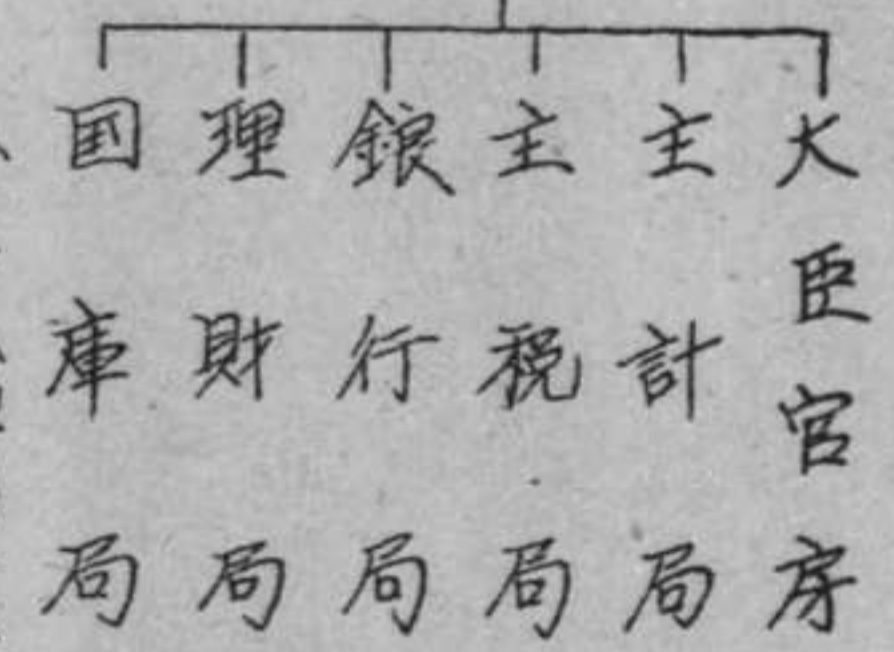 大臣官房
主計局
主税局
銀行局
理財局
国庫局